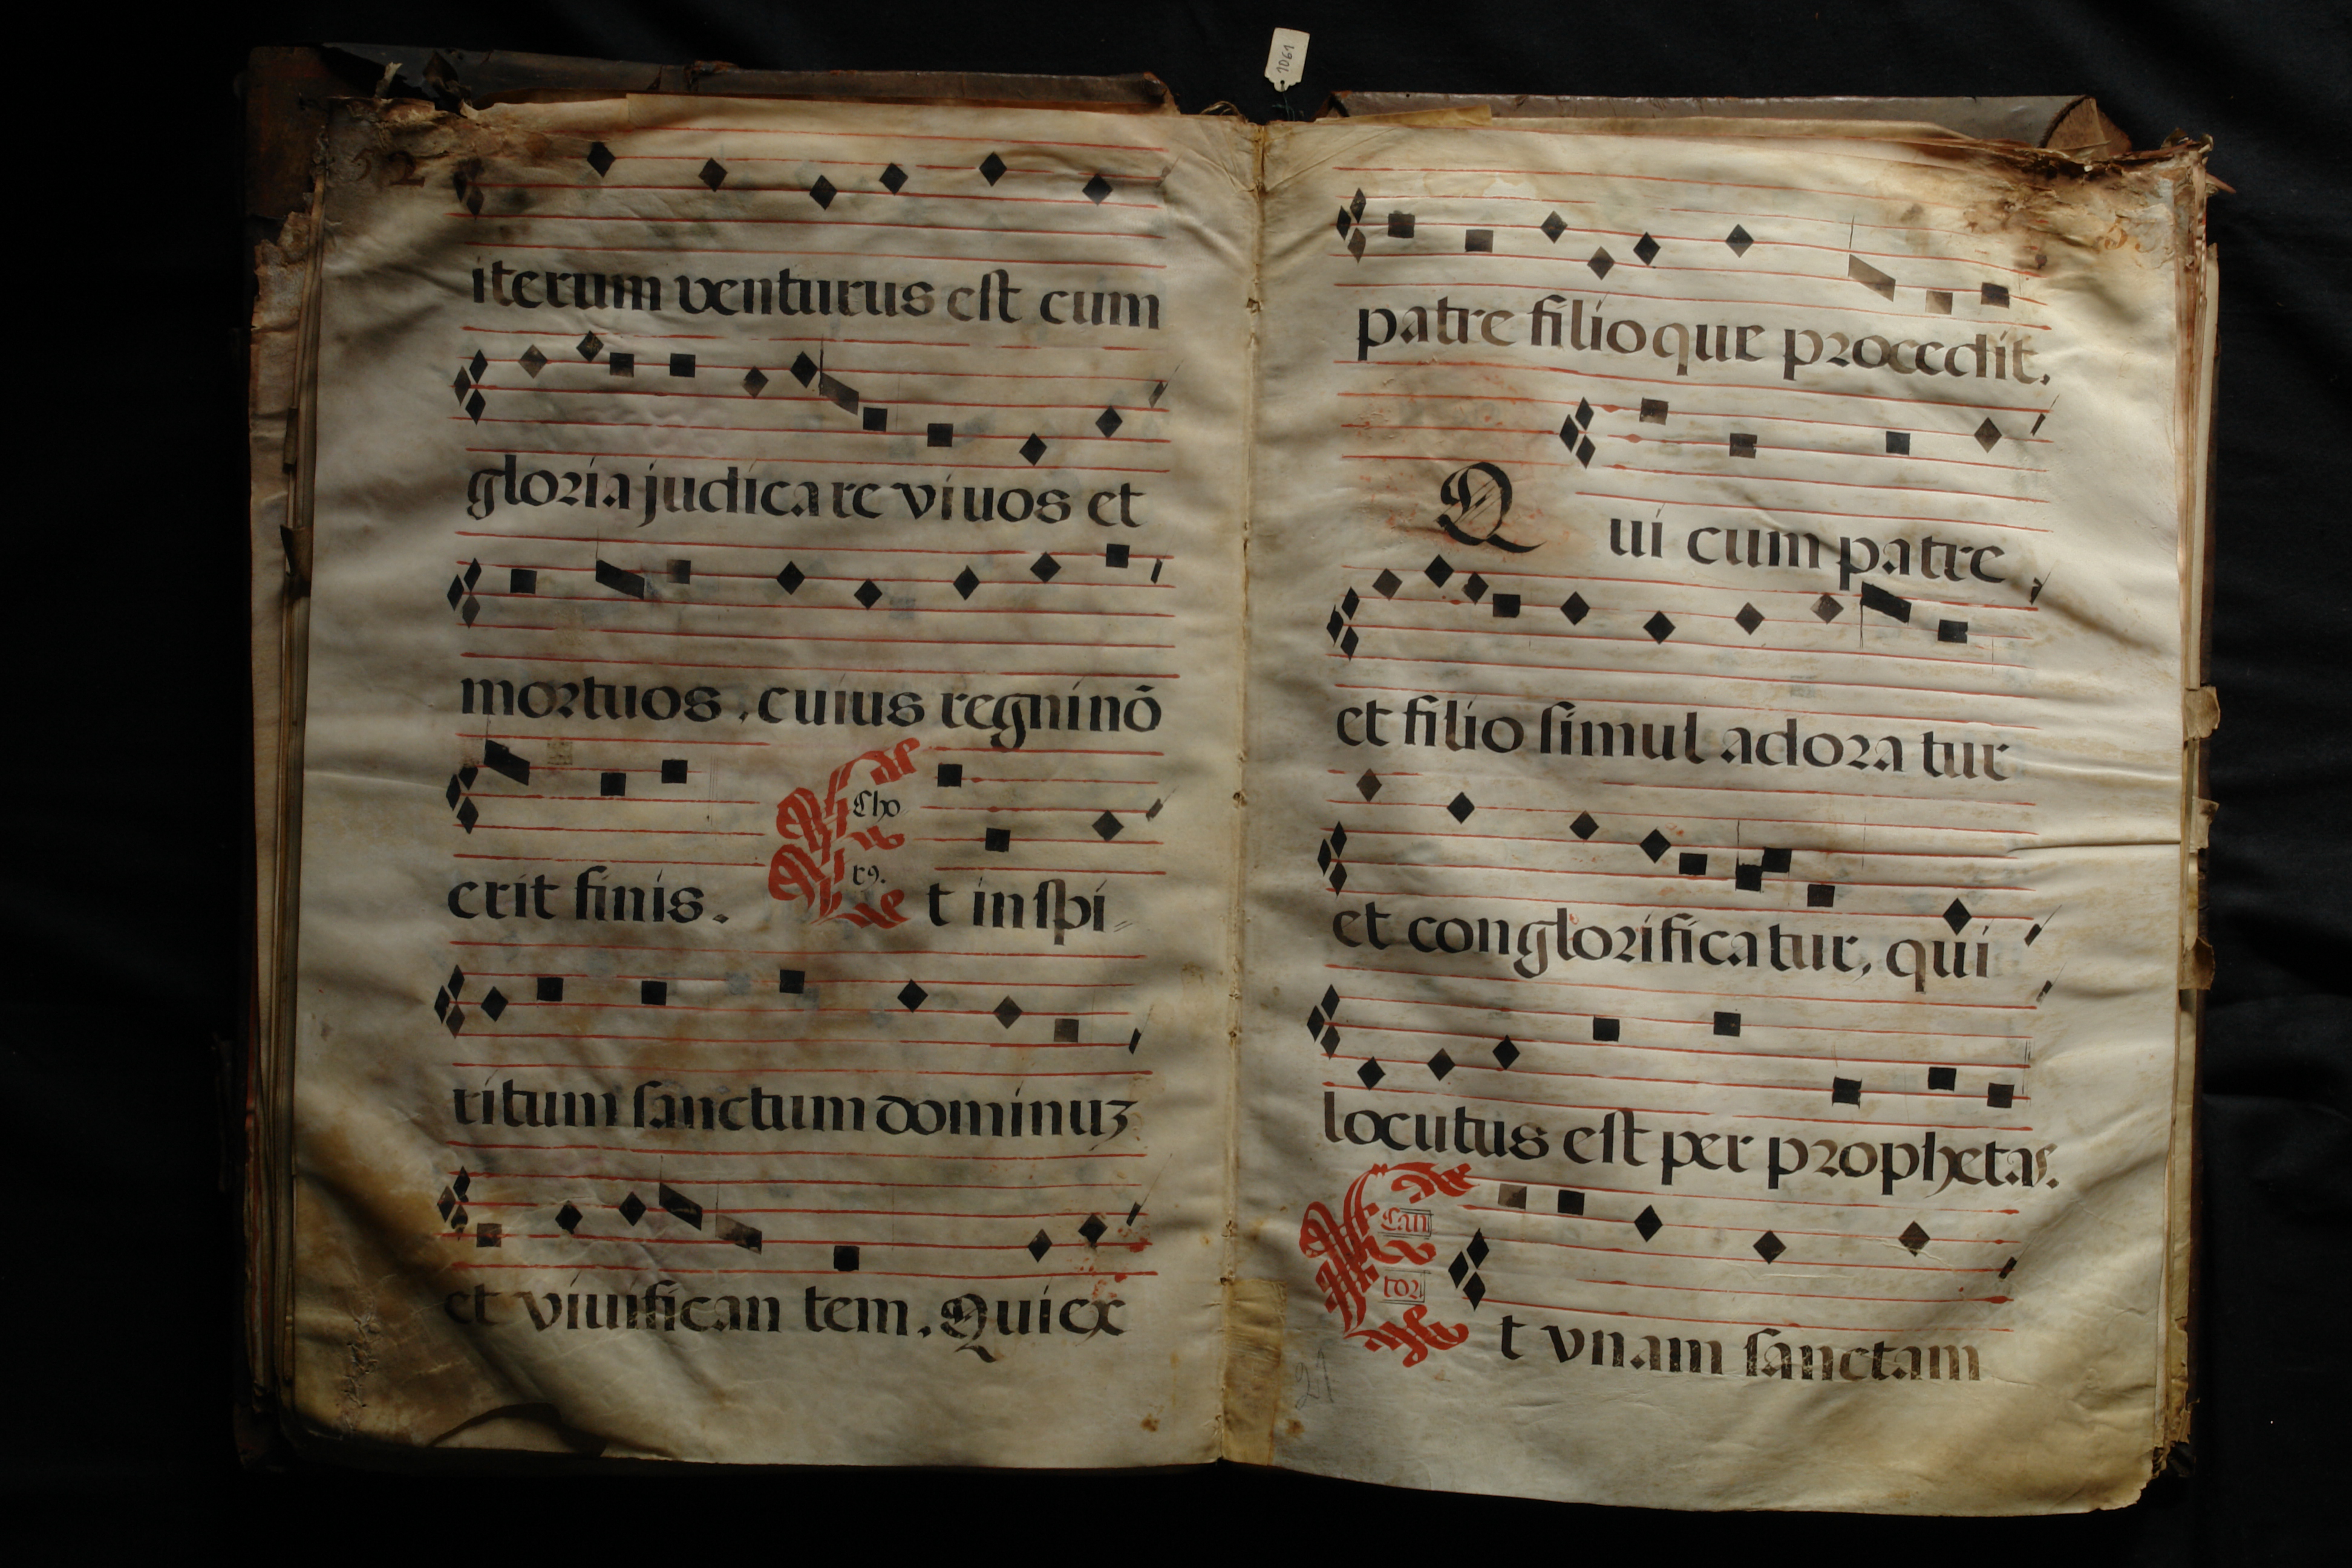 1061
52
iterum venturus est cum
gloria judicare viuos et
mortuos, cuius regni nō
Cho
r9.
erit finis. Et in spi
ritum sanctum dominuʒ
et viuifican tem. Qui ex
patre filioque procedit.
Qui cum patre
et filio simul adora tur
et conglorifica tur, qui
locutus est per prophetas.
Can
tor
Et vnam sanctam
21